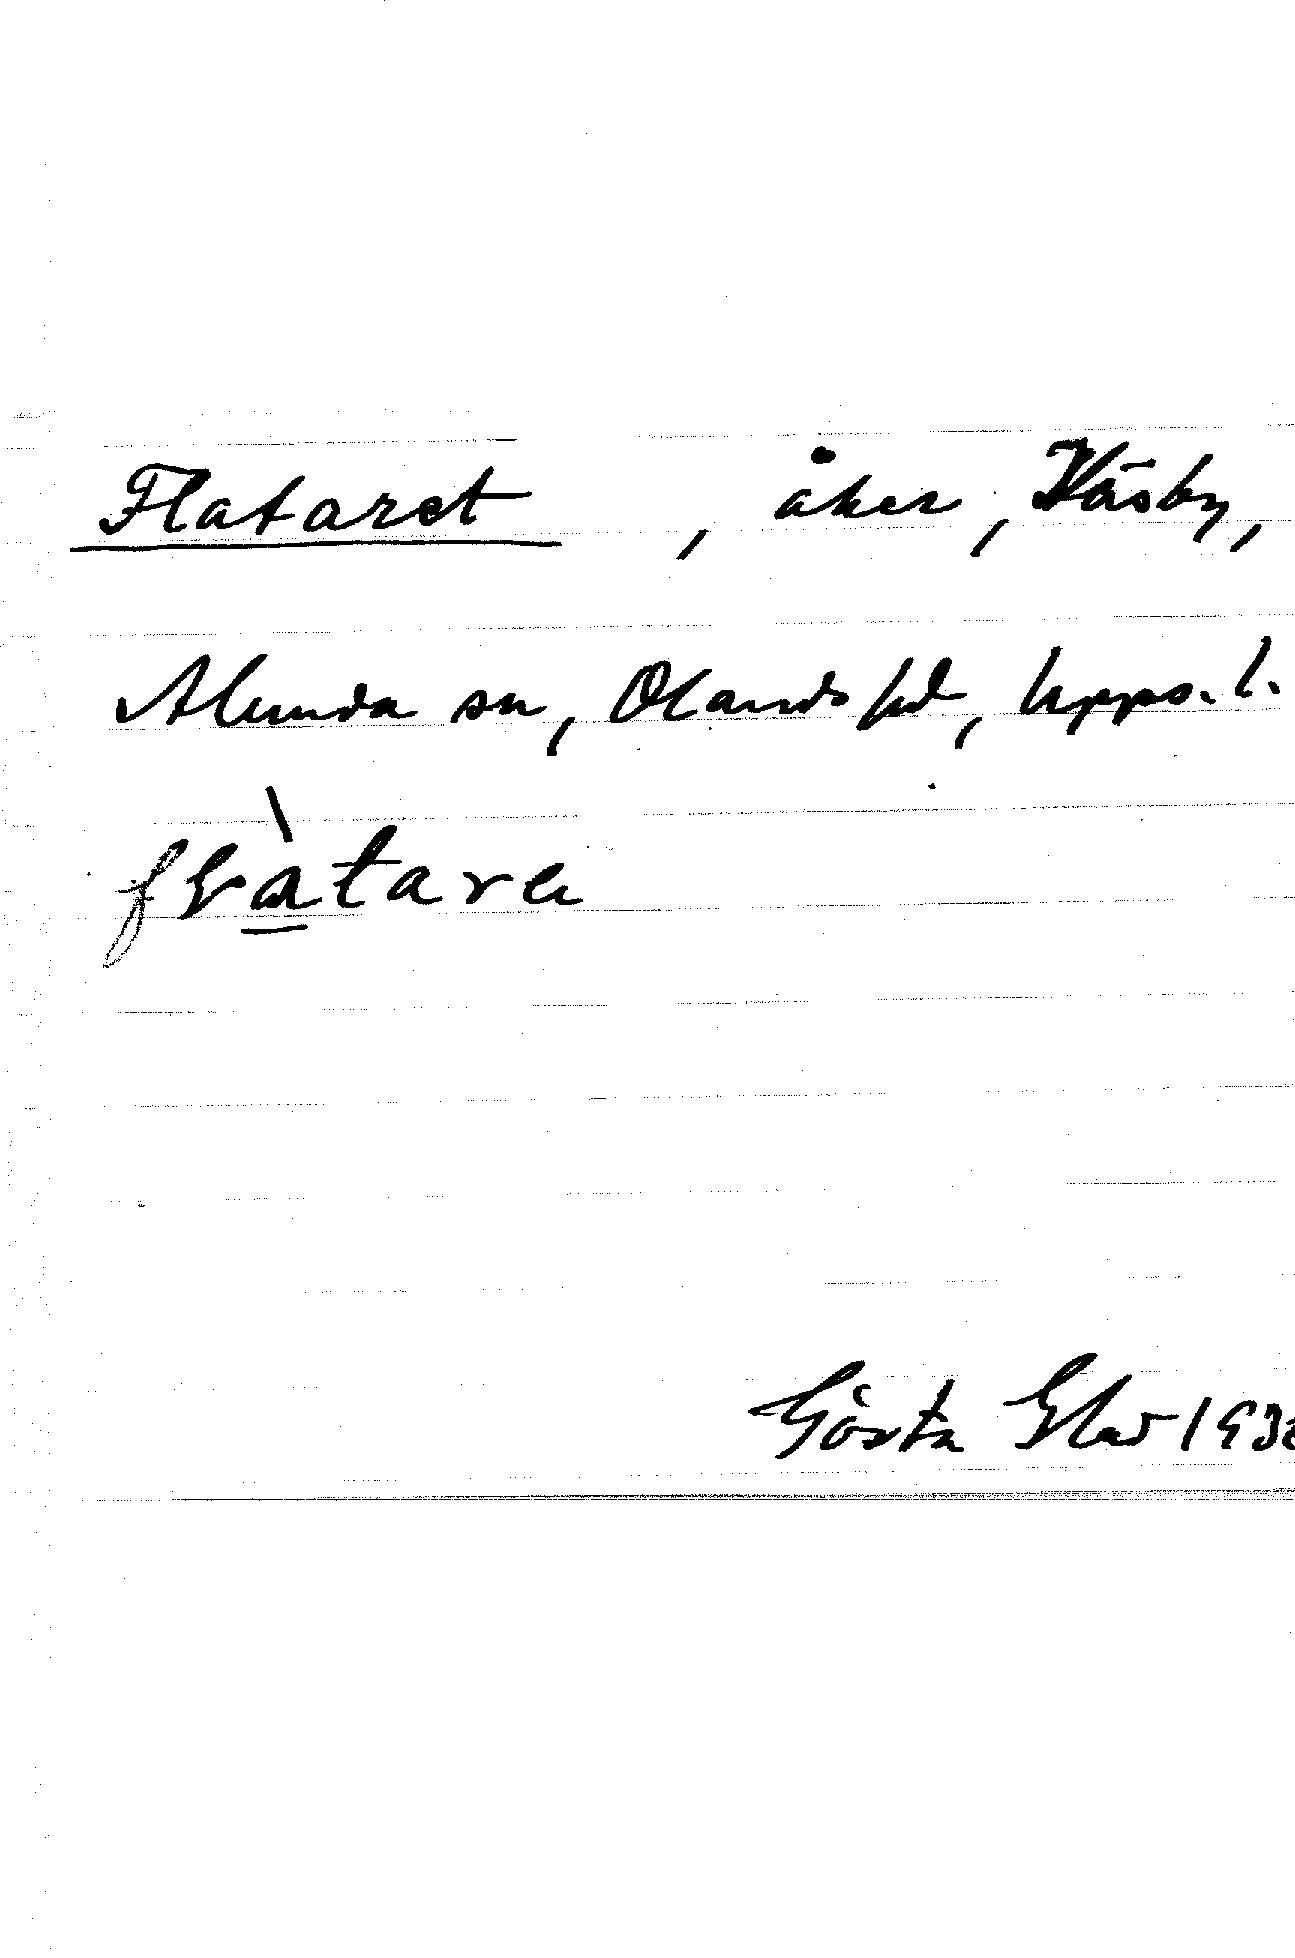 Flataret, åker, Väsby,
Alunda sn, Olands hd, Upps. l.
flàtare
Gösta Elas 193